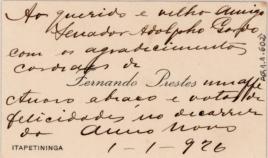 Ao querido e velho Amigo
Senador Adolpho Gordo
com os agradecimentos
cordiaes de
Fernando Prestes um
affectuoso abraço e votos de
felicidades no decorrer
do Anno Novo
ITAPETININGA 1-1-926